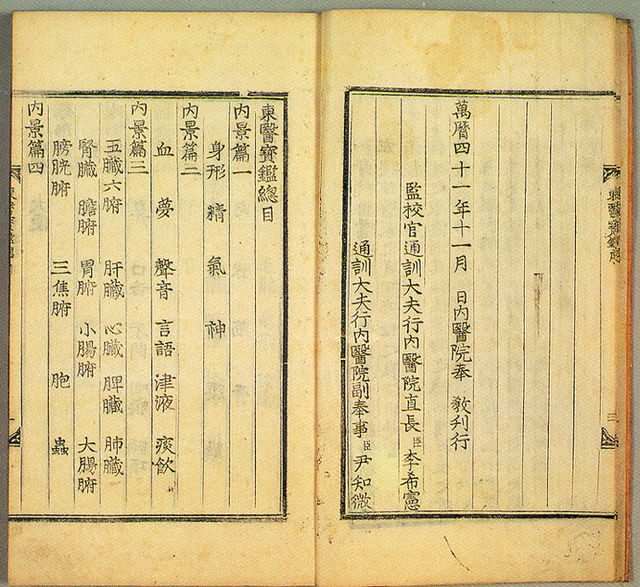 東醫寶鑑序 三
萬曆四十一年十一月 日內醫院奉 敎刊行
監校官通訓大夫行內醫院直長臣李希憲
通訓大夫行內醫院副奉事臣尹知微
東醫寶鑑總目
內景篇一
身形 精 氣 神
內景篇二
血 夢 聲音 言語 津液 痰飮
內景篇三
五臟六腑 肝臟 心臟 脾臟 肺臟
腎臟 膽腑 胃腑 小腸腑 大腸腑
膀胱腑 三焦腑 胞 蟲
內景篇四